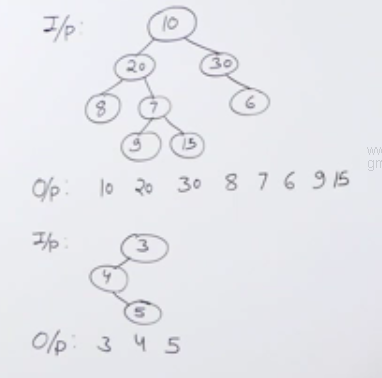 I/p:
10
20 30
8 7 6
9 15
O/p: 10 20 30 8 7 6 9 15
I/p:
3
4
5
O/p: 3 4 5